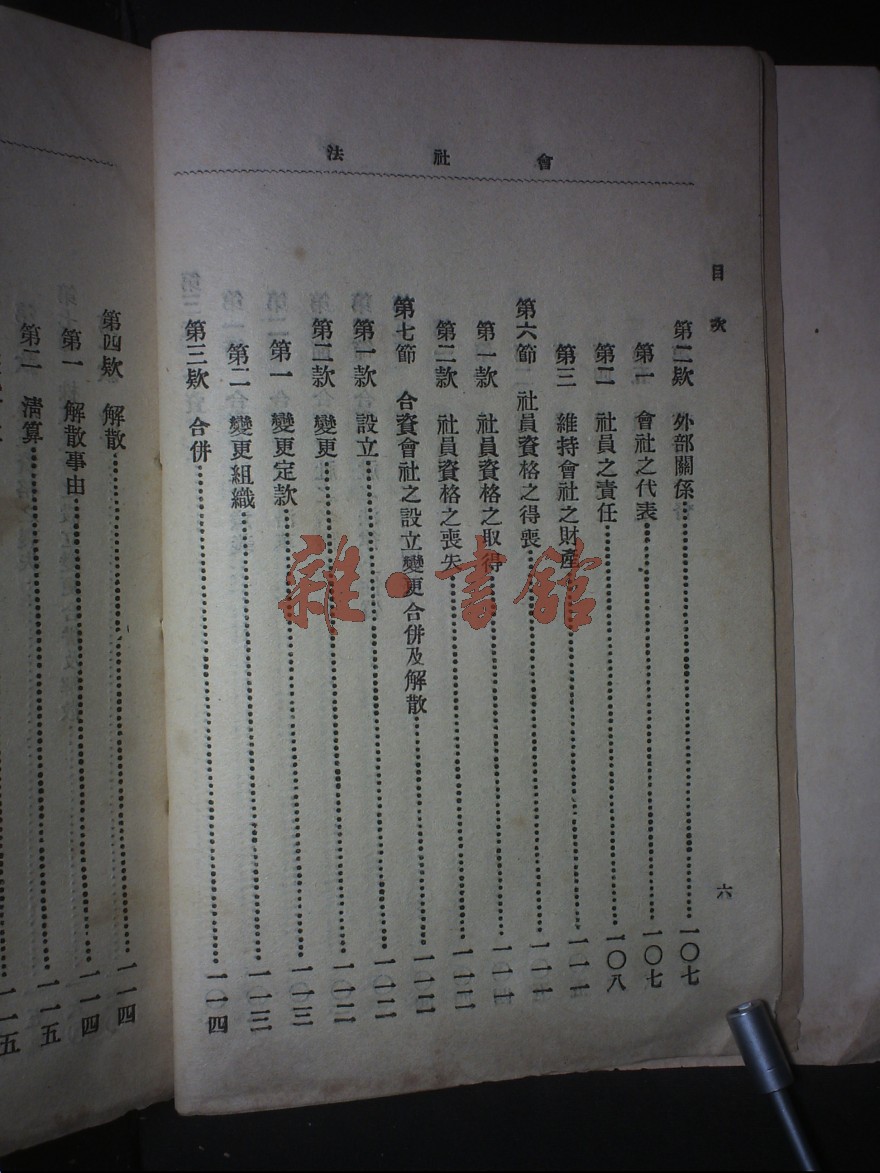 會社法
目次
六
第二欵 外部關係……一〇七
第一 會社之代表……一〇七
第二 社員之責任……一〇八
第三 維持會社之財產……一一一
第六節 社員資格之得喪
第一款 社員資格之取得
第二款 社員資格之喪失
第七節 合資會社之設立變更合併及解散……一一二
第一款 設立……一一二
第二款 變更
第一 變更定款……一一三
第二 變更組織……一一三
第三欵 合併……一一四
第四欵 解散……一一四
第一 解散事由……一一四
第二 清算……一一五
一一五
雜·書館